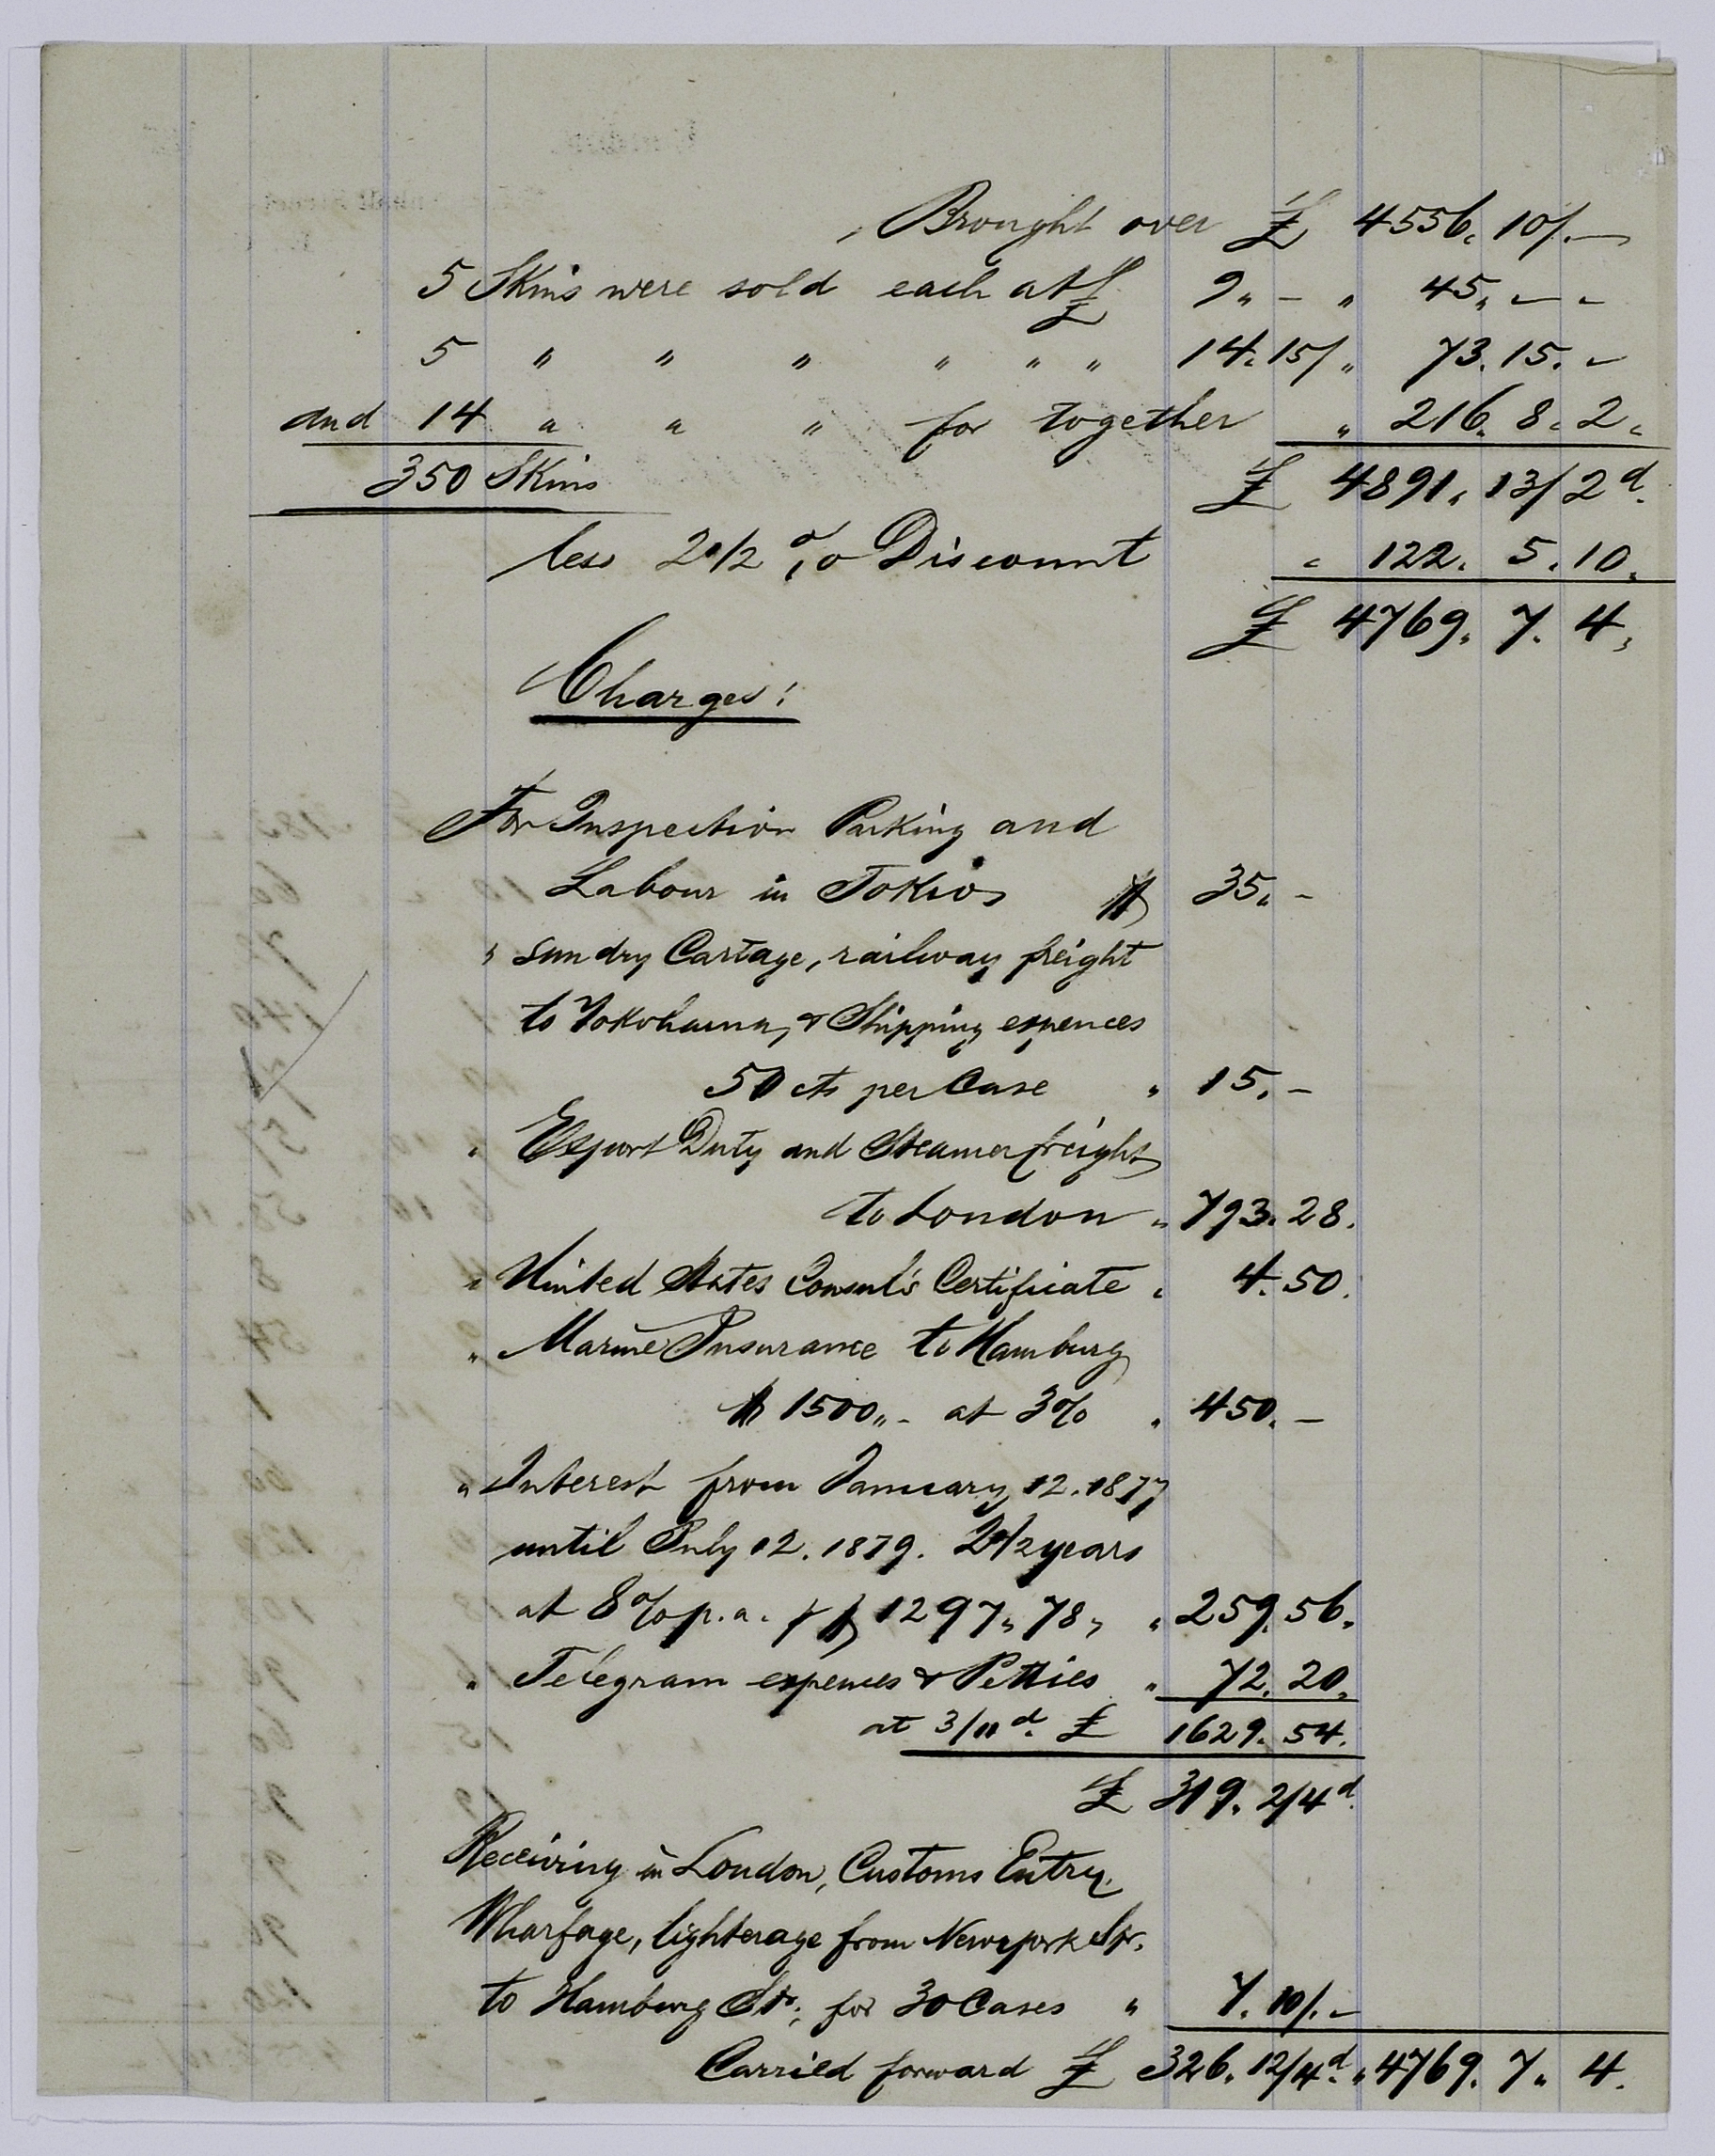 Brought over £ 4556. 10/. —
5 Skins were sold each at £ 9 „ – „ 45 „ – –
5 „ „ „ „ „ „ 14. 15/ „ 73. 15. –
and 14 „ „ „ for together „ 216. 8. 2.
350 Skins £ 4891. 13/2d.
less 2 1/2 % Discount „ 122. 5. 10.
£ 4769. 7. 4.
Charges:
For Inspection Packing and
Labour in Tokio $ 35. –
„ sundry Cartage, railway freight
to Yokohama, & Shipping expences
50 cts per Case „ 15. –
„ Export Duty and Steamer freight
to London „ 793. 28.
„ United States Consul's Certificate „ 4. 50.
„ Marine Insurance to Hamburg
$ 1500 „ – at 3% „ 450. –
„ Interest from January 12. 1877
until July 12. 1879. 2 1/2 years
at 8% p. a. $ 1297. 78. „ 259. 56.
„ Telegram expences & Petties „ 72. 20.
at 3/11d. £ 1629. 54.
£ 319. 2/4d.
Receiving in London, Customs Entry,
Wharfage, lighterage from Newyork Str.
to Hamburg Str. for 30 Cases „ 7. 10/. –
Carried forward £ 326. 12/4d. „ 4769. 7. 4.